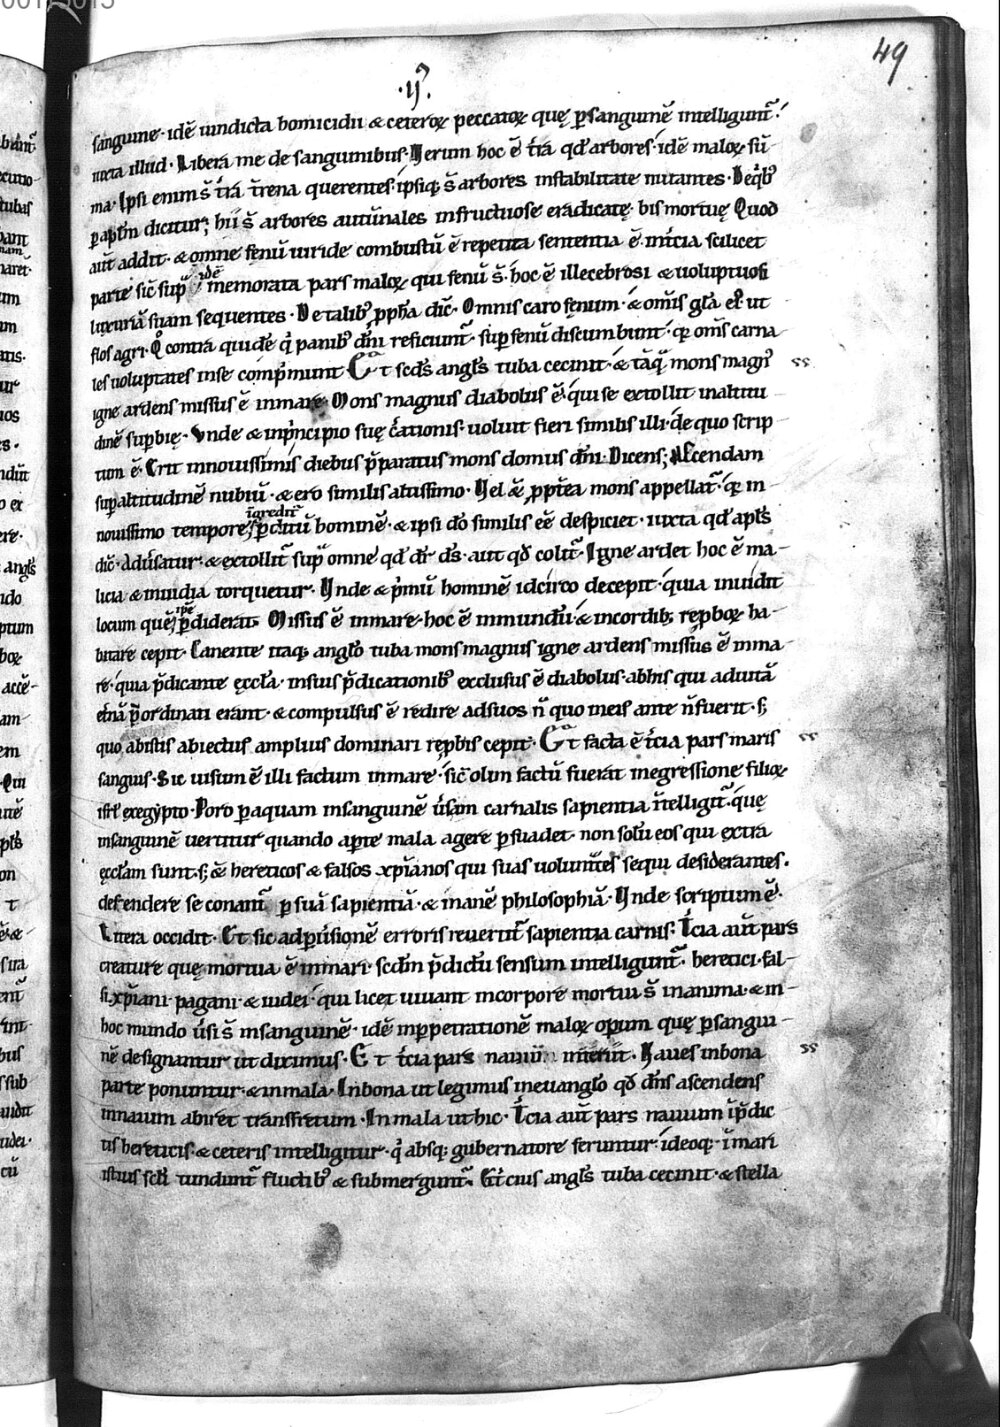 49
·ij·
sanguine· idē uindicta homicidii & ceteroꝝ peccatoꝝ quę ꝑsanguinē intelligunt᷑·
iuxta illud· Libera me de sanguinibus· Verum hoc ē t̄ra qd̓ arbores· idē maloꝝ sū-
ma· Ipsi enim s̄ t̄ra t̄rena querentes· ipsiq; s̄ arbores instabilitate nutantes· De qͥbꝰ
ꝑ apl̄m dicitur; hii s̄ arbores autūnales infructuose eradicatę· bis mortuę Quod
aūt addit· & omne fenū uiride combustū ē repetita sententia ē· in t̄cia scilicet
parte sic̄ sup᷑ idē memorata pars maloꝝ qui fenū s̄· hoc ē illecebrosi & uoluptuosi
luxuriā suam sequentes· De talibꝰ ꝓph̄a dic̄· Omnis caro fenum· & om̄is gl̄a eiꝰ ut
flos agri· Qͦ contra quidē qͥ panibꝰ dn̄i reficiunt᷑· sup̄ fenū discumbunt· qꝛ om̄s carna-
les uoluptates in se comp̄munt Et sc̄ds angl̓s tuba cecinit· & tāqͣ mons magꝰ
igne ardens missus ē in mare· Mons magnus diabolus ē· qui se extollit in altitu-
dinē suꝑbię· Vnde & in pͥncipio suę c̄ationis· uoluit fieri similis illi· de quo scrip-
tum ē· Erit in nouissimis diebus p̄paratus mons domus dn̄i· Dicens; Ascendam
suꝑ altitudinē nubiū· & ero similis altissimo· Vel & ꝓpt̄ea mons appellat᷑· qꝛ in
nouissimo tempore īgredit᷑ ꝑditū hominē· & ipsi dō similis eē despiciet· iuxta qd̓ apl̓s
dic̄· Aduersatur· & extollit᷑ sup̄ omne qd̓ dr̄ ds̄· aut qd̓ colit᷑· Igne ardet hoc ē ma-
licia & inuidia torquetur· Vnde & pͥmū hominē idcirco decepit· quia inuidit
locum quē ip̄e ꝑdiderat· Missus ē in mare· hoc ē in mundū· & in cordib; reꝓboꝝ ha-
bitare cepit· Canente itaq; angl̓o tuba mons magnus igne ardens missus ē in ma-
re· quia p̄dicante ęccl̄a· in suis p̄dicationibꝰ exclusus ē diabolus· ab his qui ad uitā
et̄nā p̄ordinati erant· & compulsus ē redire ad suos n̄ quo in eis ante n̄ fuerit· s;
quo ab istis abiectus amplius dominari reꝓbis cepit· Et facta ē t̄cia pars maris
sanguis· Sic uisum ē illi factum in mare· sic̄ olim factū fuerat in egressione filioꝝ
isrl̄ ex egypto· Poro ꝑ aquam in sanguinē ūsam carnalis sapientia īntelligit᷑· quę
in sanguinē uertitur quando aꝑte mala agere ꝑsuadet· non solū eos qui extra
ęccl̄am sunt· s; & hereticos & falsos xp̄ianos qui suas uoluntates sequi desiderantes·
defendere se conant᷑ ꝑ suā sapientiā· & inanē philosophiā· Vnde scriptum ē·
Litera occidit· Et sic ad ꝑuisionē erroris reuertit᷑ sapientia carnis: T̄cia aūt pars
creature quę mortua ē in mari· sc̄dm p̄dictū sensum intelligunt᷑ heretici· fal-
si xp̄iani· pagani· & iudei· qui licet uiuant in corpore mortui s̄ in anima· & in
hoc mundo ūsi s̄ in sanguinē· idē in ꝑpetrationē maloꝝ oꝑum quę ꝑ sangui-
nē designantur ut diximus· Et t̄cia pars nauium interiit· Naues in bona
parte ponuntur· & in mala· In bona ut legimus in euangl̓o qd̓ dn̄s ascendens
in nauim abiret transfretum· In mala ut hic· T̄cia aūt pars nauium ī p̄dic
tis hereticis· & ceteris intelligitur· qͥ absq; gubernatore feruntur· ideoq; ī mari
istius scl̄i tundunt᷑ fluctibꝰ & submergunt᷑· Et t̄cius angl̓s tuba cecinit· & stella